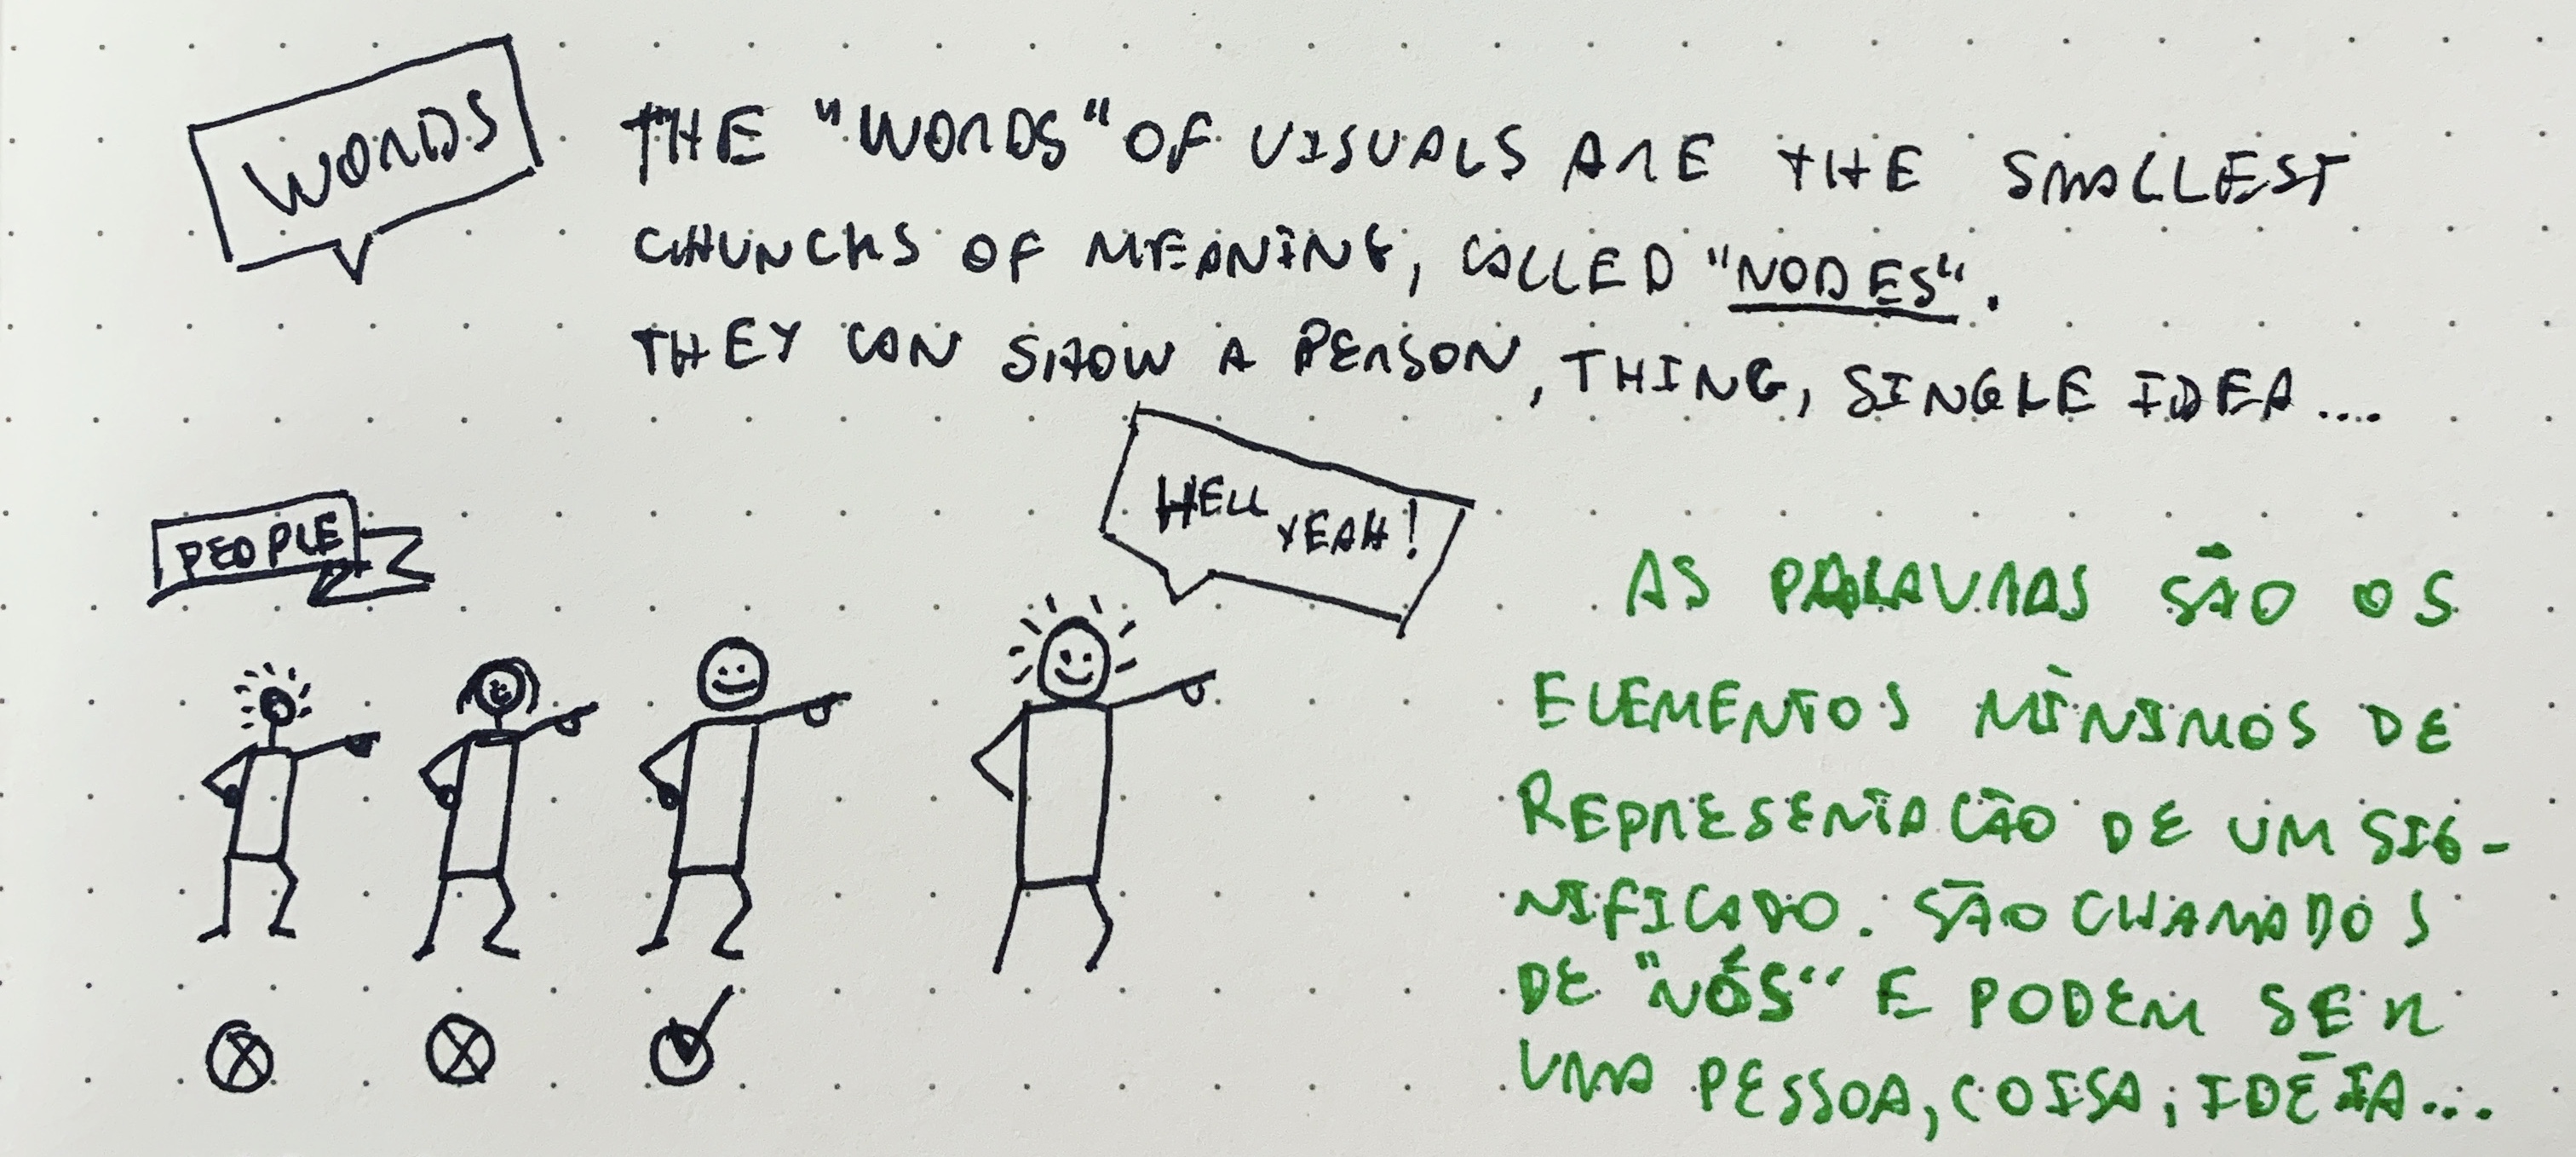 WORDS
THE "WORDS" OF VISUALS ARE THE SMALLEST
CHUNCKS OF MEANING, CALLED "NODES".
THEY CAN SHOW A PERSON, THING, SINGLE IDEA....
PEOPLE
HELL
YEAH!
AS PALAVRAS SÃO OS
ELEMENTOS MÌNIMOS DE
REPRESENTACÃO DE UM SIG-
NIFICADO. SÃO CHAMADOS
DE "NÓS" E PODEM SER
UMA PESSOA, COISA, IDÉIA...